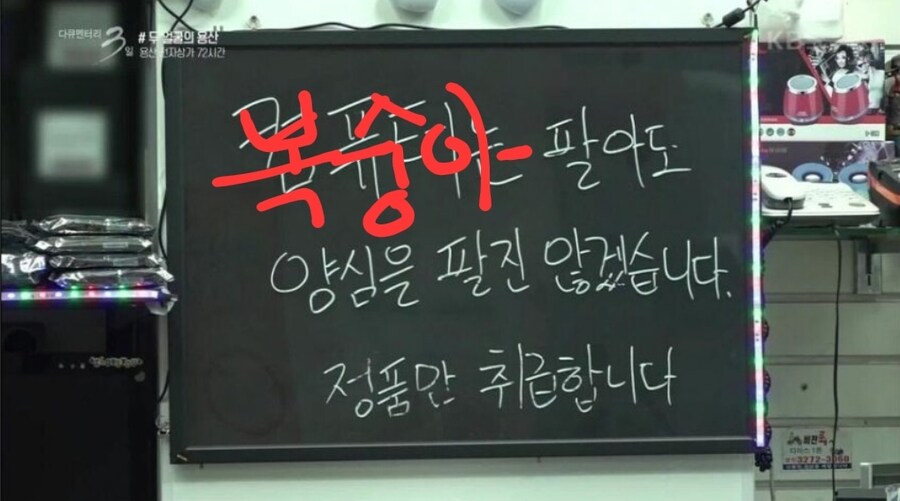 다큐멘터리 3일
# 두 얼굴의 용산
용산 전자상가 72시간
KBS
복숭아는 팔아도
양심을 팔진 않겠습니다.
정품만 취급합니다
3272-3060